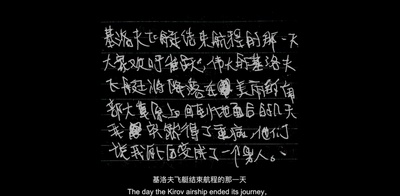 基洛夫飞艇结束航程的那一天
大家欢呼雀跃。伟大的基洛夫
飞艇将降落在美丽的南
部大草原上回到地面后的几天
我突然得了重病，他们
说我的变成了一个男人。
基洛夫飞艇结束航程的那一天
The day the Kirov airship ended its journey,